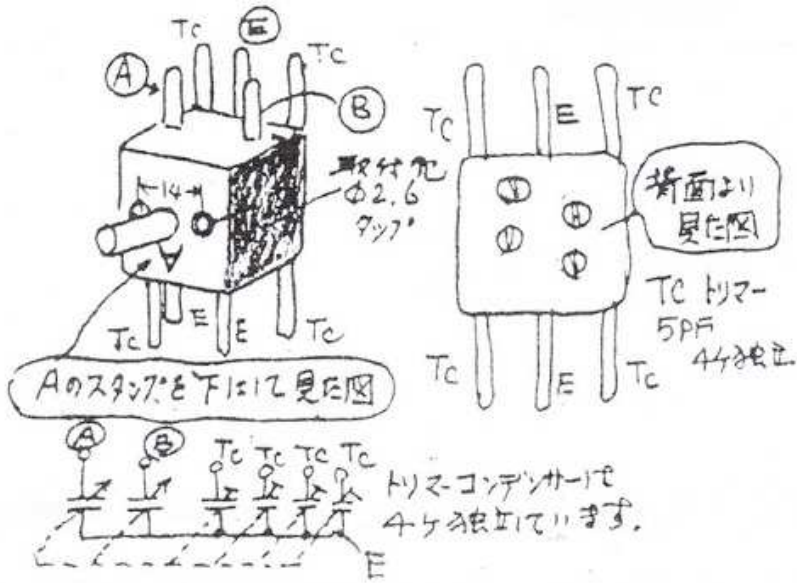 TC
E
TC
A
B
14
取付穴
Φ2.6
タップ
A
TC
E
E
TC
Aのスタンプを下にして見た図
TC
E
TC
背面より
見た図
TC トリマー
5PF
4ケ独立
TC
E
TC
A
B
TC
TC
TC
TC
E
トリマーコンデンサーは
4ケ独立しています。